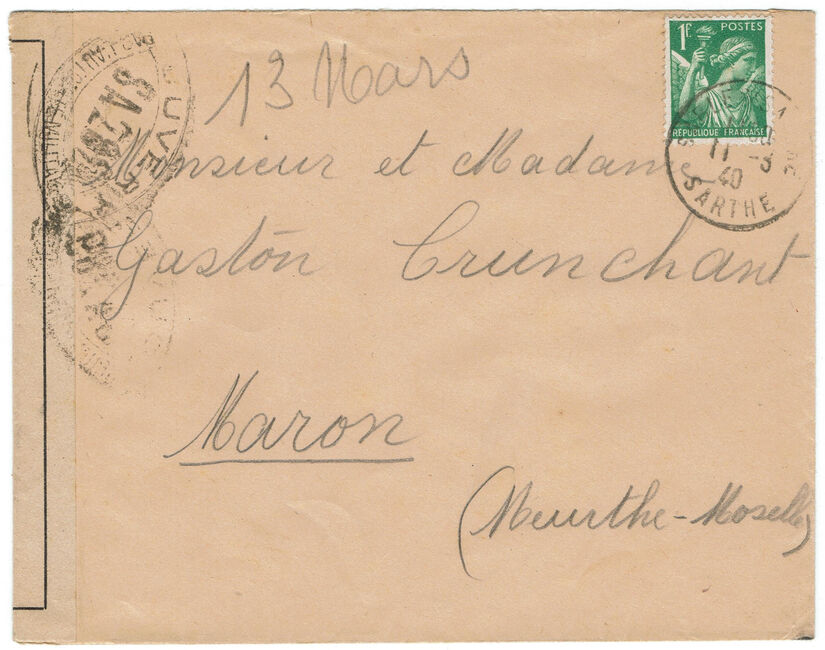 1F POSTES
RÉPUBLIQUE FRANÇAISE
13 Mars
11 -3
40
SARTHE
OUVERT
Monsieur et Madame
Gaston Crunchant
Maron
(Meurthe-Moselle)